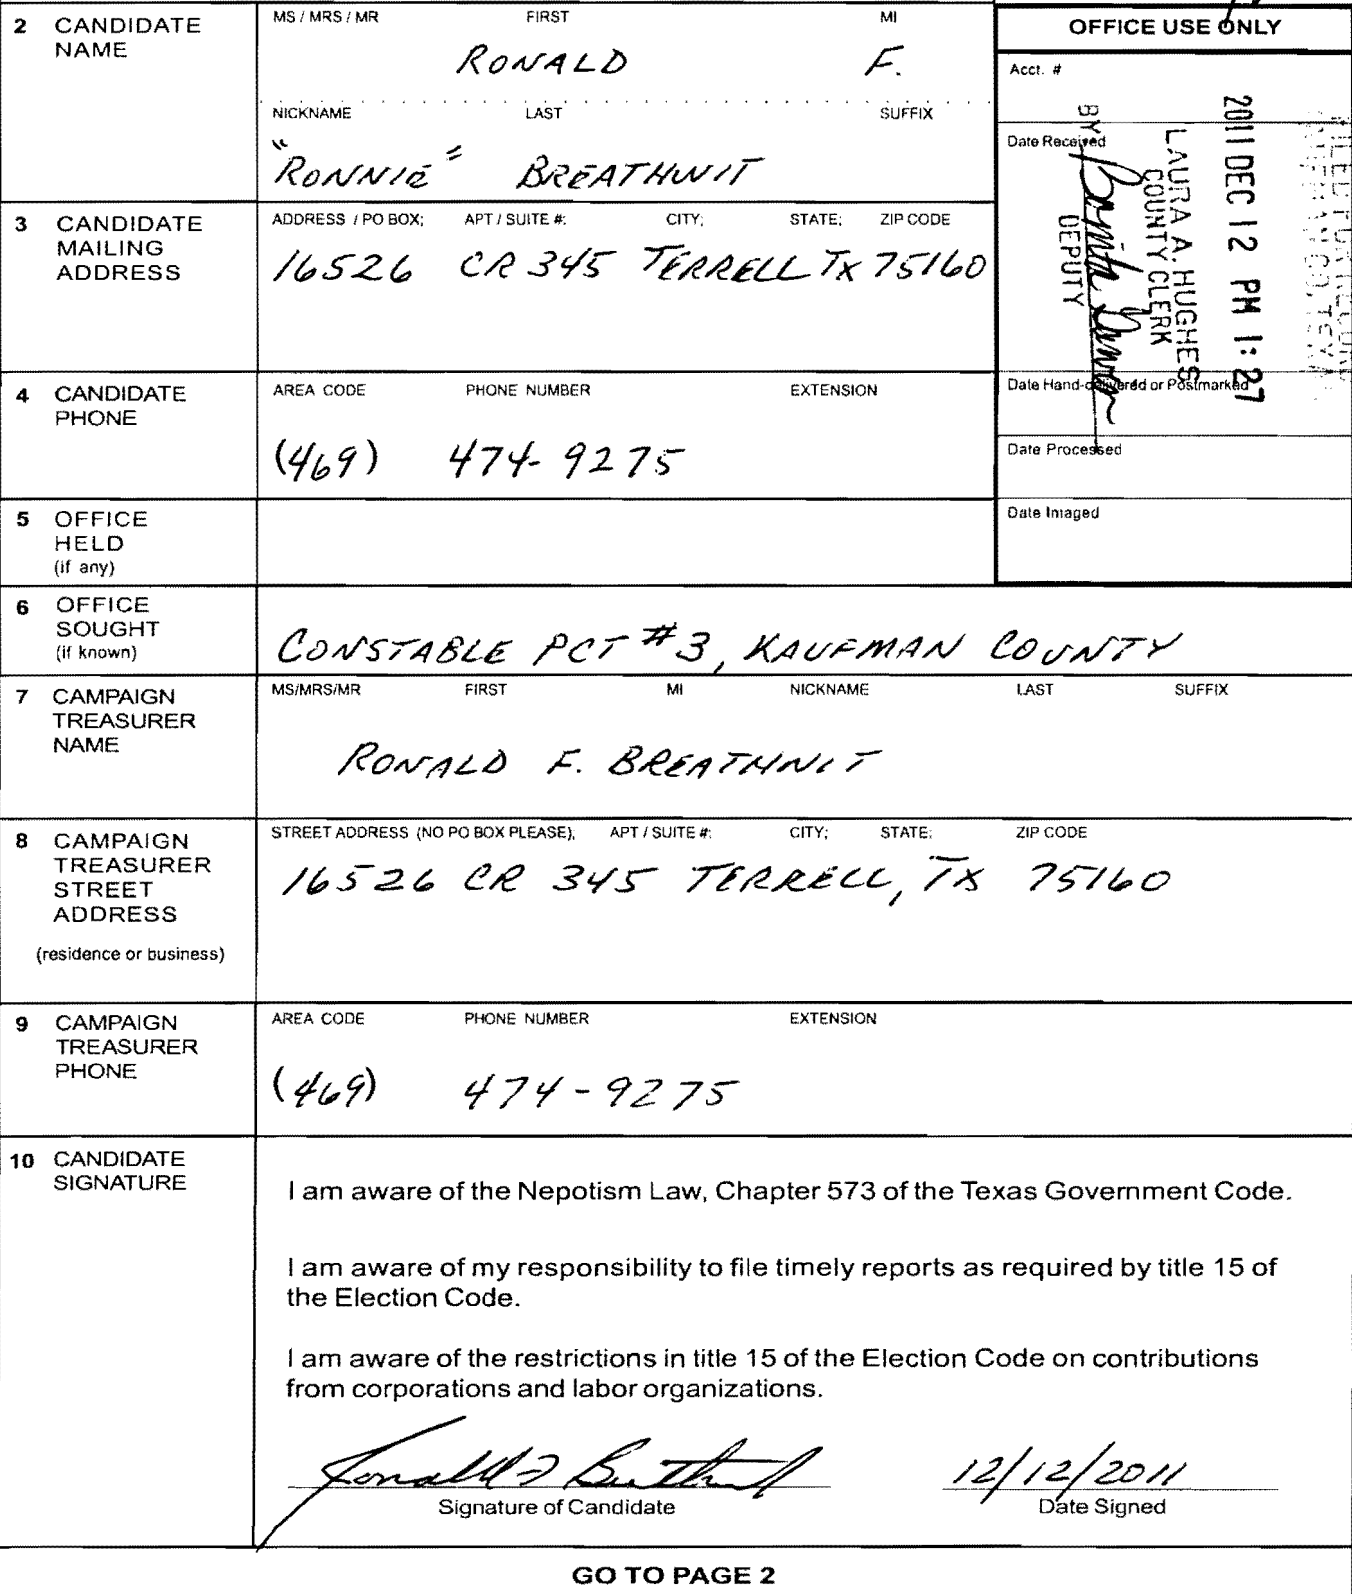 2 CANDIDATE NAME
MS / MRS / MR FIRST MI
RONALD F.
NICKNAME LAST SUFFIX
"RONNIE" BREATHWIT
OFFICE USE ONLY
Acct. #
Date Received
Date Hand-delivered or Postmarked
Date Processed
Date Imaged
2011 DEC 12 PM 1:27
LAURA A. HUGHES
COUNTY CLERK
BY:
DEPUTY
3 CANDIDATE MAILING ADDRESS
ADDRESS / PO BOX; APT / SUITE #: CITY; STATE; ZIP CODE
16526 CR 345 TERRELL TX 75160
4 CANDIDATE PHONE
AREA CODE PHONE NUMBER EXTENSION
(469) 474-9275
5 OFFICE HELD
(if any)
6 OFFICE SOUGHT
(if known)
CONSTABLE PCT #3, KAUFMAN COUNTY
7 CAMPAIGN TREASURER NAME
MS/MRS/MR FIRST MI NICKNAME LAST SUFFIX
RONALD F. BREATHWIT
8 CAMPAIGN TREASURER STREET ADDRESS
(residence or business)
STREET ADDRESS (NO PO BOX PLEASE); APT / SUITE #: CITY; STATE; ZIP CODE
16526 CR 345 TERRELL, TX 75160
9 CAMPAIGN TREASURER PHONE
AREA CODE PHONE NUMBER EXTENSION
(469) 474-9275
10 CANDIDATE SIGNATURE
I am aware of the Nepotism Law, Chapter 573 of the Texas Government Code.
I am aware of my responsibility to file timely reports as required by title 15 of
the Election Code.
I am aware of the restrictions in title 15 of the Election Code on contributions
from corporations and labor organizations.
12/12/2011
Signature of Candidate Date Signed
GO TO PAGE 2